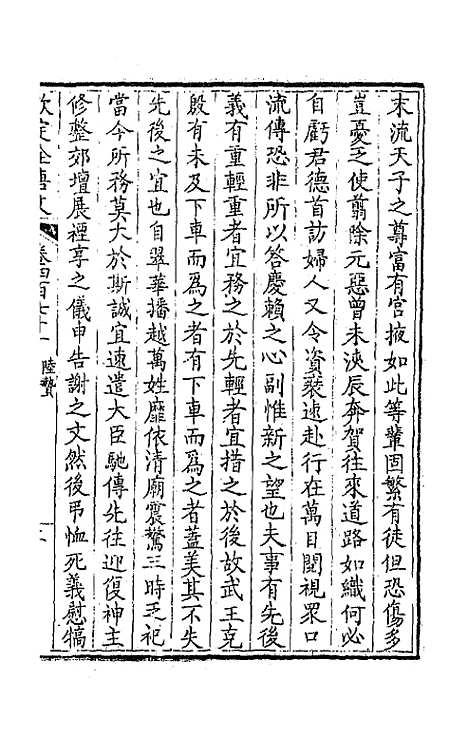 末流天子之尊富有宮掖如此等輩固繁有徒但恐傷多
豈憂乏使翦除元惡曾未浹辰奔賀往來道路如織何必
自虧君德首訪婦人又令資裝速赴行在萬目閱視眾口
流傳恐非所以答慶賴之心副惟新之望也夫事有先後
義有重輕重者宜務之於先輕者宜措之於後故武王克
殷有未及下車而為之者有下車而為之者蓋美其不失
先後之宜也自翠華播越萬姓靡依清廟震驚三時乏祀
當今所務莫大於斯誠宜速遣大臣馳傳先往迎復神主
修整郊壇展禋享之儀申告謝之文然後弔恤死義慰犒
欽定全唐文 卷四百七十一 陸贄